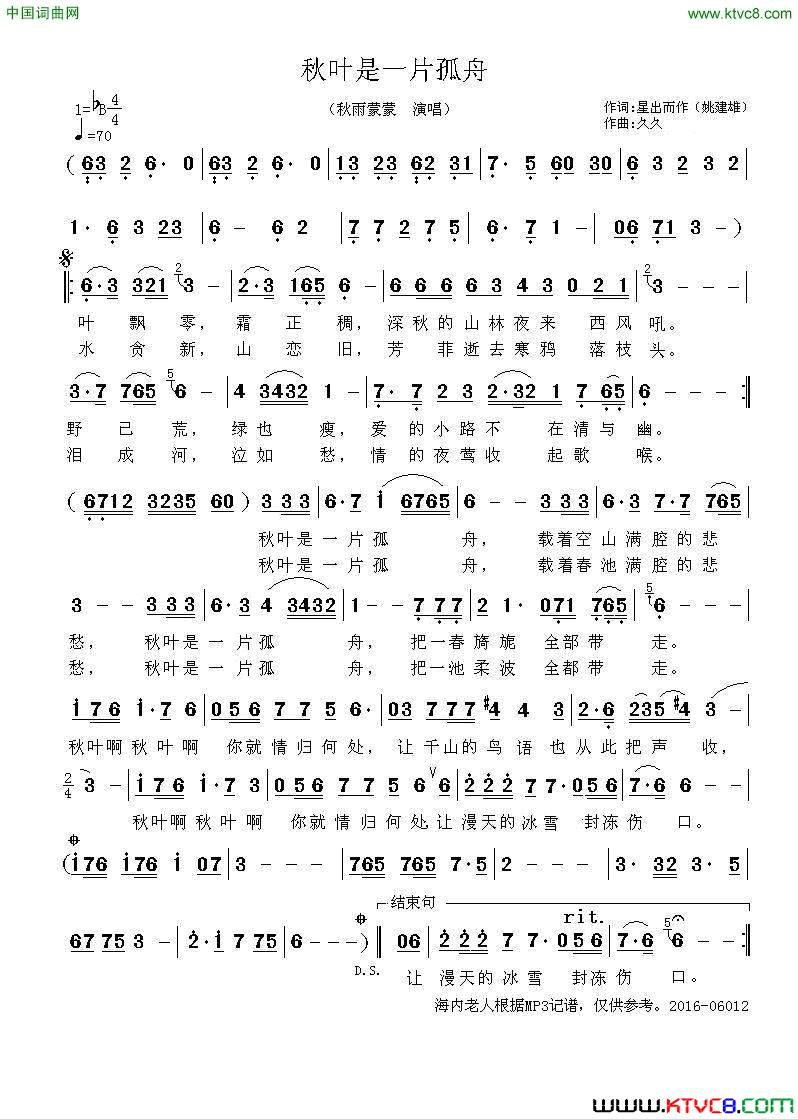 中国词曲网
www.ktvc8.com
秋叶是一片孤舟
1=♭B 4/4
♩=70
（秋雨蒙蒙 演唱）
作词:星出而作（姚建雄）
作曲:久久
( 63 2 6· 0 | 63 2 6· 0 | 13 23 62 31 | 7· 5 60 30 | 6 3 2 3 2 |
1· 6 3 23 | 6 - 6 2 | 7 7 2 7 5 | 6· 7 1 - | 06 71 3 - )
6·3 321 2 3 - | 2·3 165 6 - | 6 6 6 6 3 4 3 0 2 1 | 2 3 - - - |
叶 飘 零， 霜 正 稠， 深 秋 的 山 林 夜 来 西 风 吼。
水 贪 新， 山 恋 旧， 芳 菲 逝 去 寒 鸦 落 枝 头。
3·7 765 5 6 - | 4 3432 1 - | 7· 7 2 3 2·32 1 7 65 | 6 - - - :|
野 已 荒， 绿 也 瘦， 爱 的 小 路 不 在 清 与 幽。
泪 成 河， 泣 如 愁， 情 的 夜 莺 收 起 歌 喉。
( 6712 3235 60 ) 3 3 3 | 6·7 i 6765 | 6 - - 3 3 3 | 6·3 7·7 765 |
秋叶是 一 片 孤 舟， 载着空 山 满 腔 的 悲
秋叶是 一 片 孤 舟， 载着春 池 满 腔 的 悲
3 - - 3 3 3 | 6·3 4 3432 | 1 - - 7 7 7 | 2 1· 071 765 | 5 6 - - - |
愁， 秋叶是 一 片 孤 舟， 把一春 旖 旎 全部 带 走。
愁， 秋叶是 一 片 孤 舟， 把一池 柔 波 全都 带 走。
i 76 i·7 6 | 056 7 7 5 6 | 03 777 #4 4 | 2·6 235 #4 3 - |
秋叶啊 秋 叶 啊 你就 情 归 何 处， 让 千山的 鸟 语 也 从 此 把 声 收，
2/4 3 - | i 76 i·7 3 | 056 7 7 5 6 ∨ 6 | 222 7 7·056 | 7·6 6 - |
秋叶啊 秋 叶 啊 你就 情 归 何 处,让 漫天的 冰 雪 封冻 伤 口。
( i76 i76 i 07 | 3 - - - | 765 765 7· 5 | 2 - - - | 3· 32 3· 5 |
67 75 3 - | 2·i 7 75 | 6 - - - )
D.S.
结束句
rit.
06 | 222 7 7·056 | 7·6 5 6 - ‖
让 漫天的 冰 雪 封冻 伤 口。
海内老人根据MP3记谱，仅供参考。2016-06012
www.KTVC8.com